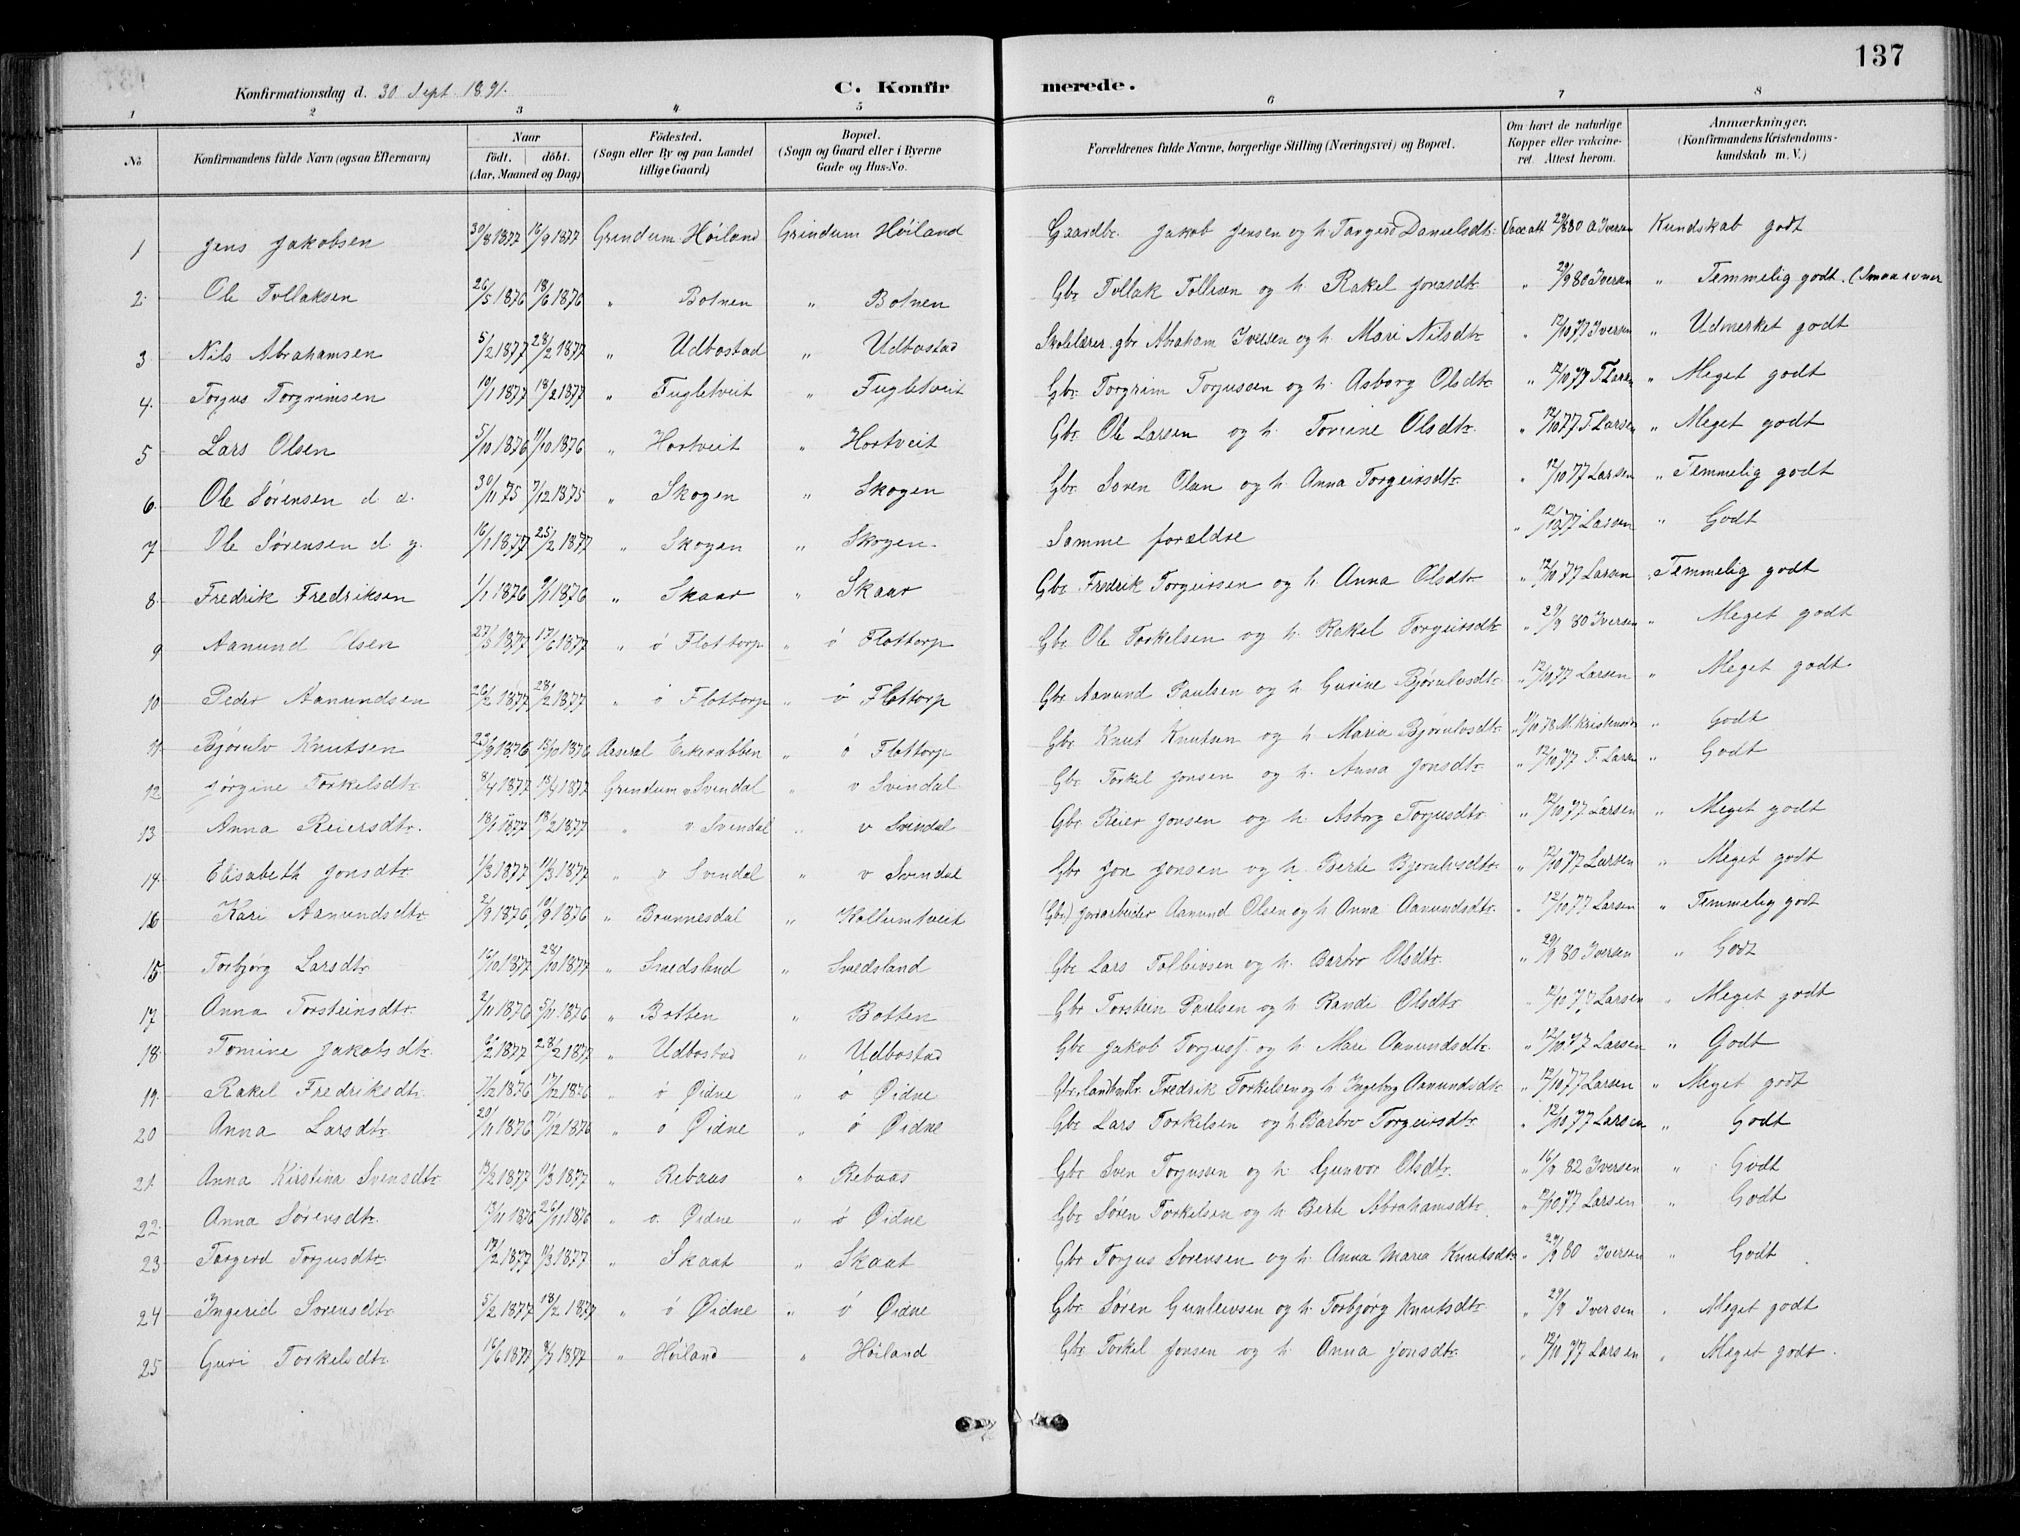 137
Konfirmationsdag d. 30 Sept. 1891.
C. Konfirmerede.
1 2 3 4 5 6 7 8
No
Konfirmandens fulde Navn (ogsaa Efternavn)
Naar
født. døbt.
(Aar, Maaned og Dag)
Fødested.
(Sogn eller By og paa Landet
tillige Gaard)
Bopæl.
(Sogn og Gaard eller i Byerne
Gade og Hus-No.
Forældrenes fulde Navne, borgerlige Stilling (Næringsvei) og Bopæl.
Om havt de naturlige
Kopper eller vakcine-
ret. Attest herom.
Anmærkninger.
(Konfirmandens Kristendoms-
kundskab m. V.)
1 Jens Jakobsen 30/8 1877 16/9 1877 Grindum Høiland Grindum Høiland Gaardbr. Jakob Jensen og h. Targerd Danielsdtr. Vacc att 29/8 80 O Iversen Kundskab godt
2. Ole Tollaksen 26/5 1876 18/6 1876 " Botnen " Botnen Gbr. Tollak Tollisen og h. Rakel Jonasdtr. " 29/9 80 Iversen " Temmelig godt. (Smaa evner
3 Nils Abrahamsen 5/2 1877 28/2 1877 " Udbostad " Udbostad Skolelærer gbr Abraham Iversen og h. Mari Nilsdtr. " 12/10 77 Iversen " Udmerket godt
4. Torjus Torgrimsen 10/1 1877 18/2 1877 " Fugletveit " Fugletveit Gbr. Torgrim Torjussen og h. Asborg Olsdtr. " 12/10 77 T Larsen " Meget godt
5 Lars Olsen 5/10 1876 /10 1876 " Hortveit " Hortveit Gbr. Ole Larsen og h. Tomine Olsdtr. " 12/10 77 T Larsen " Meget godt
6. Ole Sørensen d. æ. 30/11 75 7/12 1875 " Skogen " Skogen Gbr. Søren Olsen og h. Anna Torgeirsdtr. " 12/10 77 Larsen " Temmelig godt
7 Ole Sørensen d. y. 16/1 1877 25/2 1877 " Skogen " Skogen. Samme forældre " 12/10 77 Larsen " Godt
8. Fredrik Fredriksen 1/1 1876 9/1 1876 " Skaar " Skaar Gbr. Fredrik Torgeirsen og h. Anna Olsdtr " 12/10 77 Larsen " Temmelig godt
9 Aanund Olsen 27/5 1877 17/6 1877 " ø Flottorp " ø Flottorp Gbr. Ole Torkelsen og h. Rakel Torgeirsdtr " 29/9 80 Iversen " Meget godt
10 Peder Aanundsen 26/2 1877 28/2 1877 " ø Flottorp " ø Flottorp Gbr Aanund Paulsen og h. Gurine Bjørulvsdtr. " 12/10 77 Larsen " Meget godt
11 Bjørulv Knutsen 23/9 1876 15/10 1876 Aaseral Eikerabben " ø Flottorp Gbr. Knut Knutsen og h. Maria Bjørulvsdtr. " 78 M. Kristensen " Godt
12 Jørgine Torkelsdtr. 8/4 1877 15/4 1877 Grindum v Svindal " v Svindal Gbr. Torkel Jonsen og h. Anna Jonsdtr. " 12/10 77 T. Larsen " Godt
13 Anna Reiersdtr. 18/1 1877 18/2 1877 " v Svindal " v Svindal Gbr. Reier Jonsen og h. Asborg Torjusdtr. " 12/10 77 Larsen " Meget godt
14. Elisabeth Jonsdtr. 1/3 1877 11/3 1877 " v Svindal " v Svindal Gbr Jon Jonsen og h. Berte Bjørulvsdtr. " 12/10 77 Larsen " Meget godt
16 Kari Aanundsdtr 2/9 1876 10/9 1876 " Brunnesdal " Kollumtveit (Gbr.) Jordarbeider Aanund Olsen og h Anna Aanundsdtr. " 12/10 77 Larsen " Temmelig godt
15 Torbjørg Larsdtr. 16/10 1877 28/10 1877 " Smedsland " Smedsland Gbr Lars Tolleivsen og h. Barbro Olsdtr. " 29/9 80 Iversen " Godt
17 Anna Torsteinsdtr. 2/11 1876 5/11 1876 " Botten " Botten Gbr Torstein Paulsen og h. Randi Olsdtr. " 12/10 77 Larsen " Meget godt
18. Tomine Jakobsdtr. 6/2 1877 28/2 1877 " Udbostad " Udbostad Gbr. Jakob Torjuss. og h. Mari Aanundsdtr. " 12/10 77 Larsen " Godt
19. Rakel Fredriksdtr 7/12 1876 17/12 1876 " ø Øidne " ø Øidne Gbr. landhdlr. Fredrik Torkelsen og h. Ingeborg Aanundsdtr " 12/10 77 Larsen " Meget godt
20 Anna Larsdtr. 20/11 1876 17/12 1876 " ø Øidne " ø Øidne Gbr Lars Torkelsen og h Barbro Torgeirsdtr. " 12/10 77 Larsen " Godt
21. Anna Kirstina Svensdtr. 17/2 1877 11/3 1877 " Rebaas " Rebaas Gbr Sven Torjussen og h. Gunvor Olsdtr. " 16/9 82 Iversen " Godt
22. Anna Sørensdtr. 13/11 1876 26/11 1876 " ø. Øidne " ø Øidne Gbr Søren Torkelsen og h Berte Abrahamsdtr. " 12/10 77 Larsen " Godt
23 Targerd Torjusdtr. 17/2 1877 11/3 1877 " Skaat " Skaat Gbr Torjus Sørensen og h. Anna Maria Knutsdtr. " 29/9 80 Iversen " Godt
24 Ingerid Sørensdtr. 5/2 1877 18/2 1877 " ø Øidne " ø Øidne Gbr. Søren Gunleivsen og h. Torbjørg Knutsdtr. " 29/9 Iversen " Meget godt
25 Guri Torkelsdtr 16/6 1877 8/7 1877 " Høiland " Høiland Gbr. Torkel Jonsen og h. Anna Jonsdtr. " 12/10 77 Larsen " Meget godt.